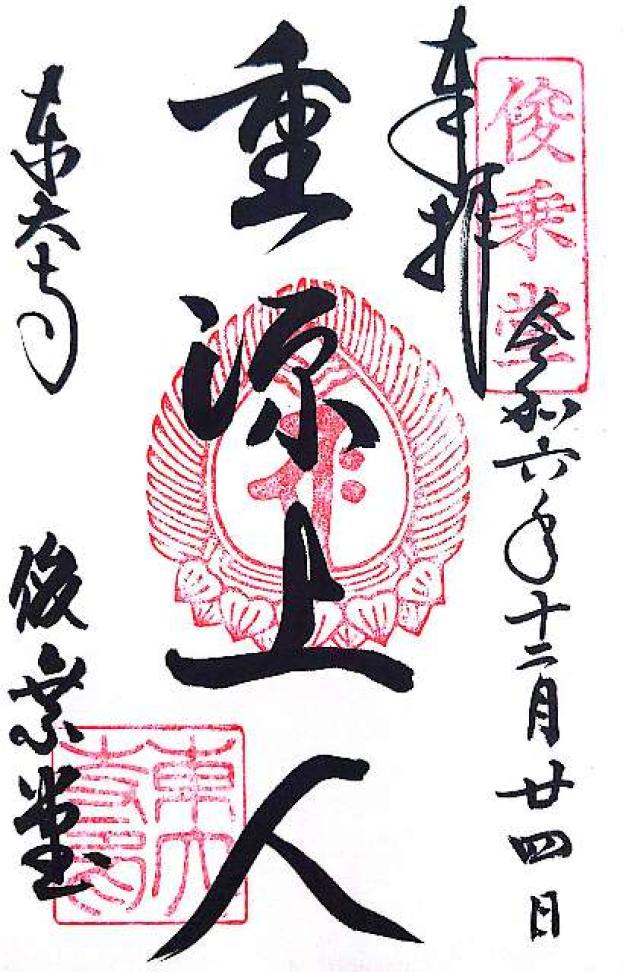 俊乗堂
奉拝
令和六年十二月廿四日
重源上人
東大寺
俊乗堂
東大寺